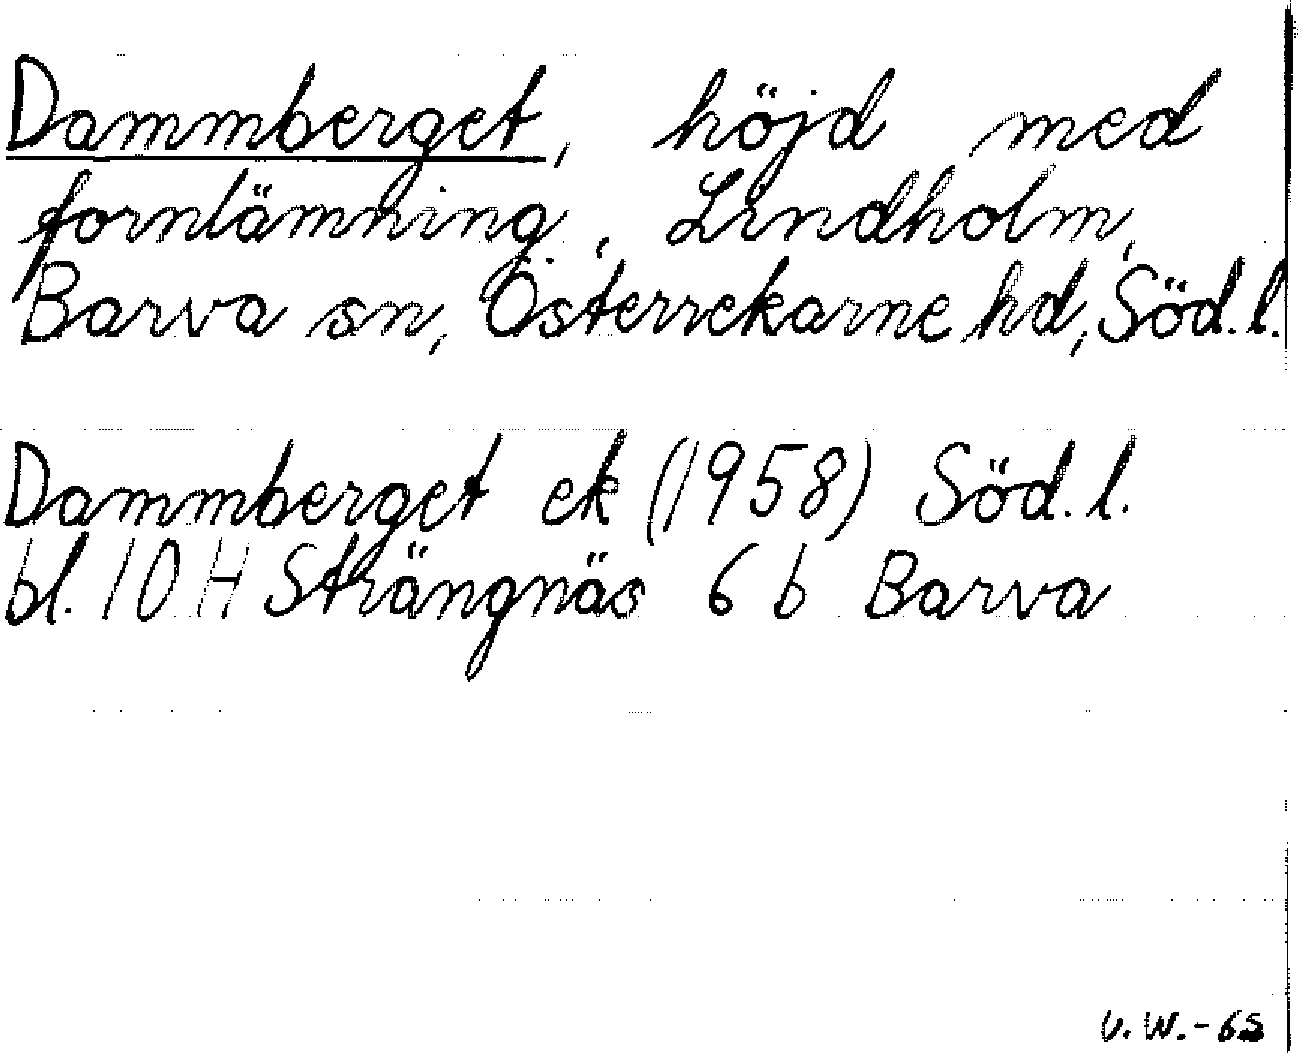 Dammberget, höjd med
fornlämning, Lindholm,
Barva sn, Österrekarne hd, Söd.l.
Dammberget ek (1958) Söd.l.
bl. 10 H Strängnäs 6 b Barva
U.W.-65